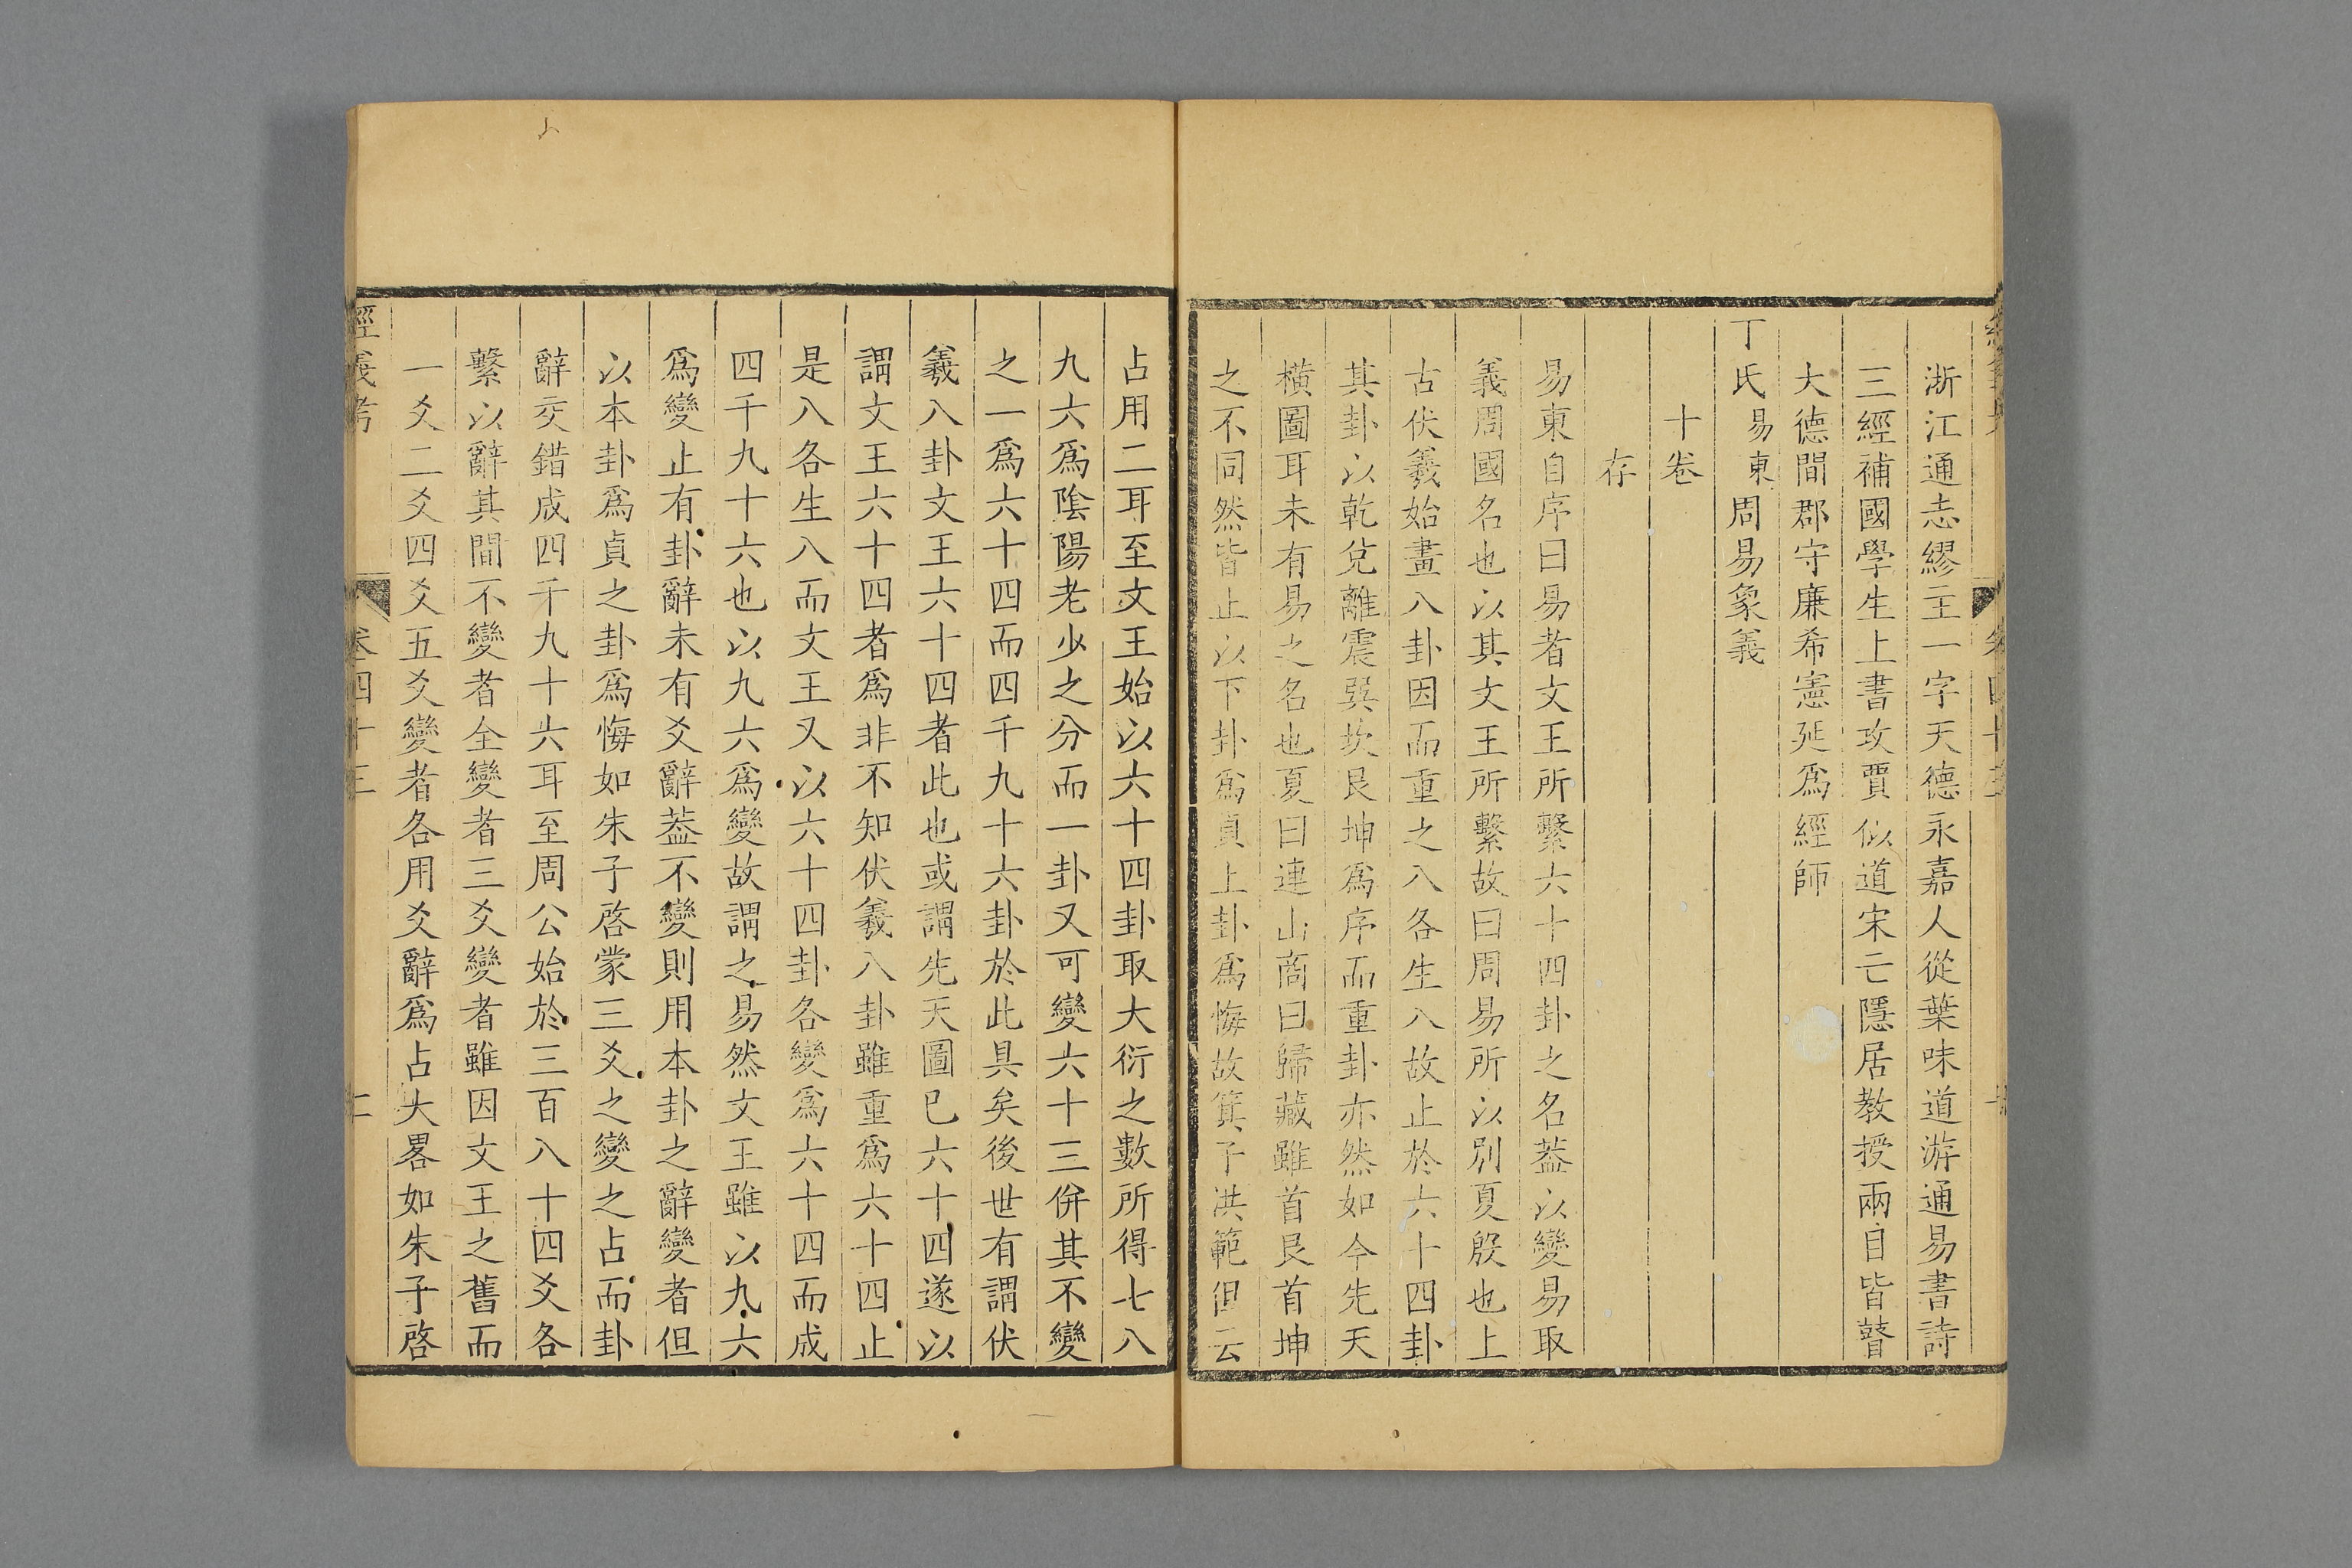 浙江通志繆主一字天德永嘉人從葉味道游通易書詩
三經補國學生上書攻賈似道宋亡隱居教授兩目皆瞽
大德間郡守廉希憲延爲經師
丁氏易東周易象義
十卷
存
易東自序曰易者文王所繫六十四卦之名葢以變易取
義周國名也以其文王所繫故曰周易所以別夏殷也上
古伏羲始畫八卦因而重之八各生八故止於六十四卦
其卦以乾兌離震巽坎艮坤爲序而重卦亦然如今先天
橫圖耳未有易之名也夏曰連山商曰歸藏雖首艮首坤
之不同然皆止以下卦爲貞上卦爲悔故箕子洪範但云
占用二耳至文王始以六十四卦取大衍之數所得七八
九六爲陰陽老少之分而一卦又可變六十三併其不變
之一爲六十四而四千九十六卦於此具矣後世有謂伏
羲八卦文王六十四者此也或謂先天圖已六十四遂以
謂文王六十四者爲非不知伏羲八卦雖重爲六十四止
是八各生八而文王又以六十四卦各變爲六十四而成
四千九十六也以九六爲變故謂之易然文王雖以九六
爲變止有卦辭未有爻辭葢不變則用本卦之辭變者但
以本卦爲貞之卦爲悔如朱子啓蒙三爻之變之占而卦
辭交錯成四千九十六耳至周公始於三百八十四爻各
繫以辭其間不變者全變者三爻變者雖因文王之舊而
一爻二爻四爻五爻變者各用爻辭爲占大畧如朱子啓
經義考 卷四十三 二